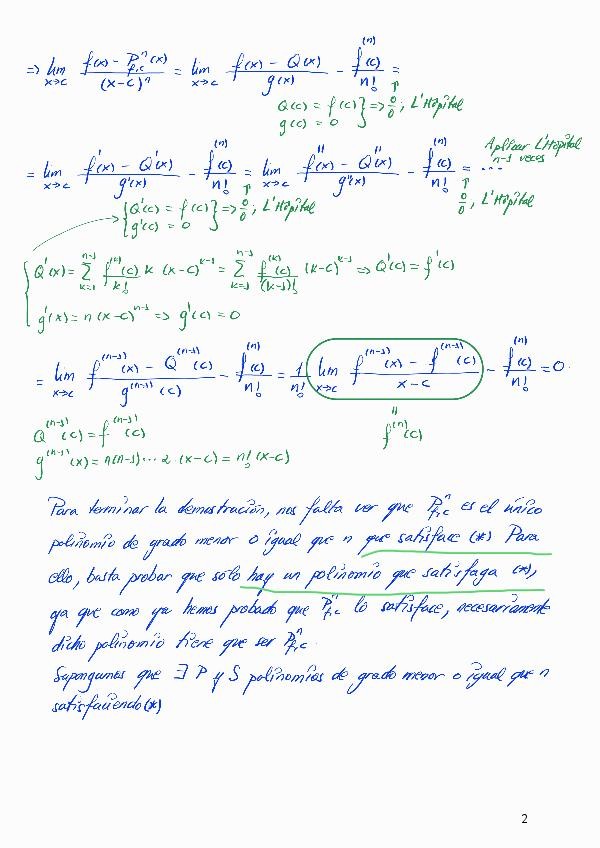 ⇒ lim_{x→c} (f(x) - P^n_{f,c}(x))/(x-c)^n = lim_{x→c} (f(x) - Q(x))/g(x) - f^{(n)}(c)/n! =
Q(c) = f(c) } ⇒ 0/0, L'Hôpital
g(c) = 0
= lim_{x→c} (f'(x) - Q'(x))/g'(x) - f^{(n)}(c)/n! = lim_{x→c} (f''(x) - Q''(x))/g''(x) - f^{(n)}(c)/n! = ...
Aplicar L'Hôpital
n-1 veces
{ Q'(c) = f'(c) } ⇒ 0/0, L'Hôpital
g'(c) = 0
0/0, L'Hôpital
Q'(x) = Σ_{k=1}^{n-1} f^{(k)}(c)/k! k (x-c)^{k-1} = Σ_{k=1}^{n-1} f^{(k)}(c)/(k-1)! (x-c)^{k-1} ⇒ Q'(c) = f'(c)
g'(x) = n(x-c)^{n-1} ⇒ g'(c) = 0
= lim_{x→c} (f^{(n-1)}(x) - Q^{(n-1)}(c))/g^{(n-1)}(c) - f^{(n)}(c)/n! = 1/n! lim_{x→c} (f^{(n-1)}(x) - f^{(n-1)}(c))/(x-c) - f^{(n)}(c)/n! = 0.
Q^{(n-1)}(c) = f^{(n-1)}(c)
= f^{(n)}(c)
g^{(n-1)}(x) = n(n-1)...2·(x-c) = n!(x-c)
Para terminar la demostración, nos falta ver que P^n_{f,c} es el único
polinomio de grado menor o igual que n que satisface (*) Para
ello, basta probar que sólo hay un polinomio que satisfaga (*),
ya que como ya hemos probado que P^n_{f,c} lo satisface, necesariamente
dicho polinomio tiene que ser P^n_{f,c}.
Supongamos que ∃ P y S polinomios de grado menor o igual que n
satisfaciendo (*)
2